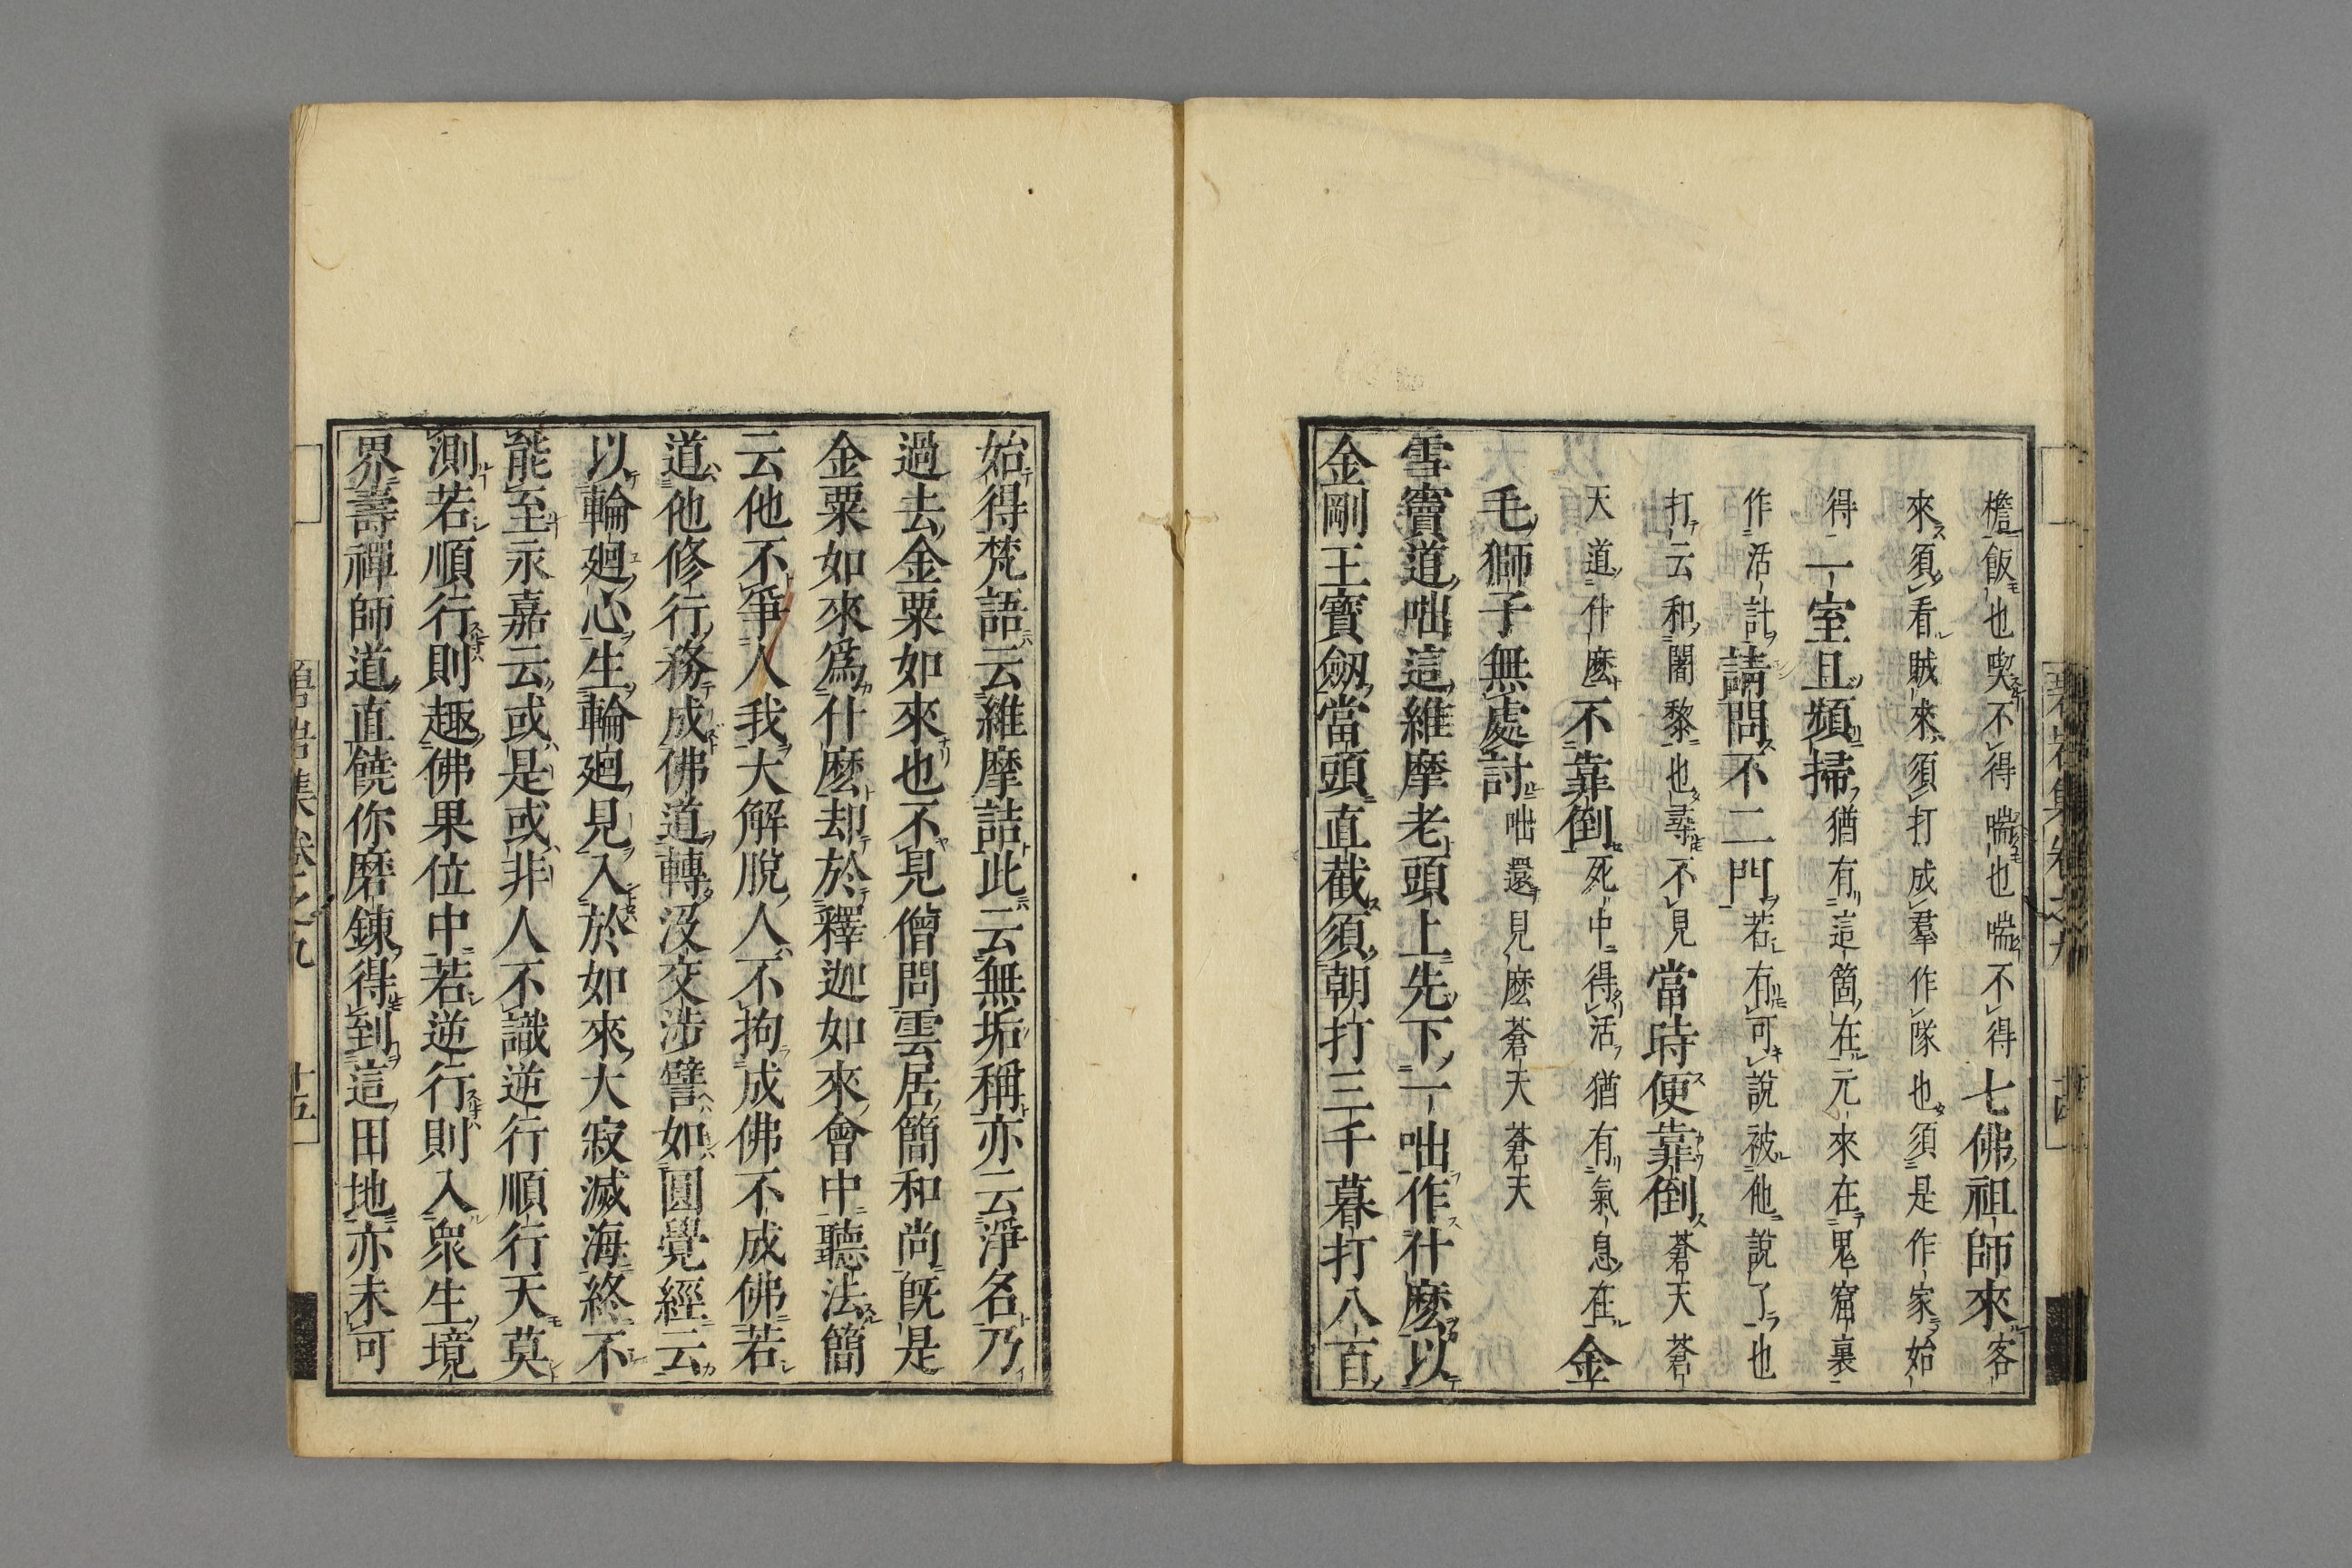 檐飯也喫不得喘也喘不得七佛祖師來客
來須看賊來須打成羣作隊也須是作家始
得一室且頻掃猶有這箇在元來在鬼窟裏
作活計請問不二門若有可說被他說了也
打云和闍黎也尋不見當時便靠倒蒼天蒼
天道什麽不靠倒死中得活猶有氣息在金
毛獅子無處討咄還見麽蒼天蒼天
雪竇道咄這維摩老頭上先下一咄作什麽以
金剛王寶劔當頭直截須朝打三千暮打八百
始得梵語云維摩詰此云無垢稱亦云淨名乃
過去金粟如來也不見僧問雲居簡和尚既是
金粟如來爲什麽却於釋迦如來會中聽法簡
云他不爭人我大解脫人不拘成佛不成佛若
道他修行務成佛道轉沒交涉譬如圓覺經云
以輪廻心生輪廻見入於如來大寂滅海終不
能至永嘉云或是或非人不識逆行順行天莫
測若順行則趣佛果位中若逆行則入衆生境
界壽禪師道直饒你磨鍊得到這田地亦未可
碧岩集卷之九 十五